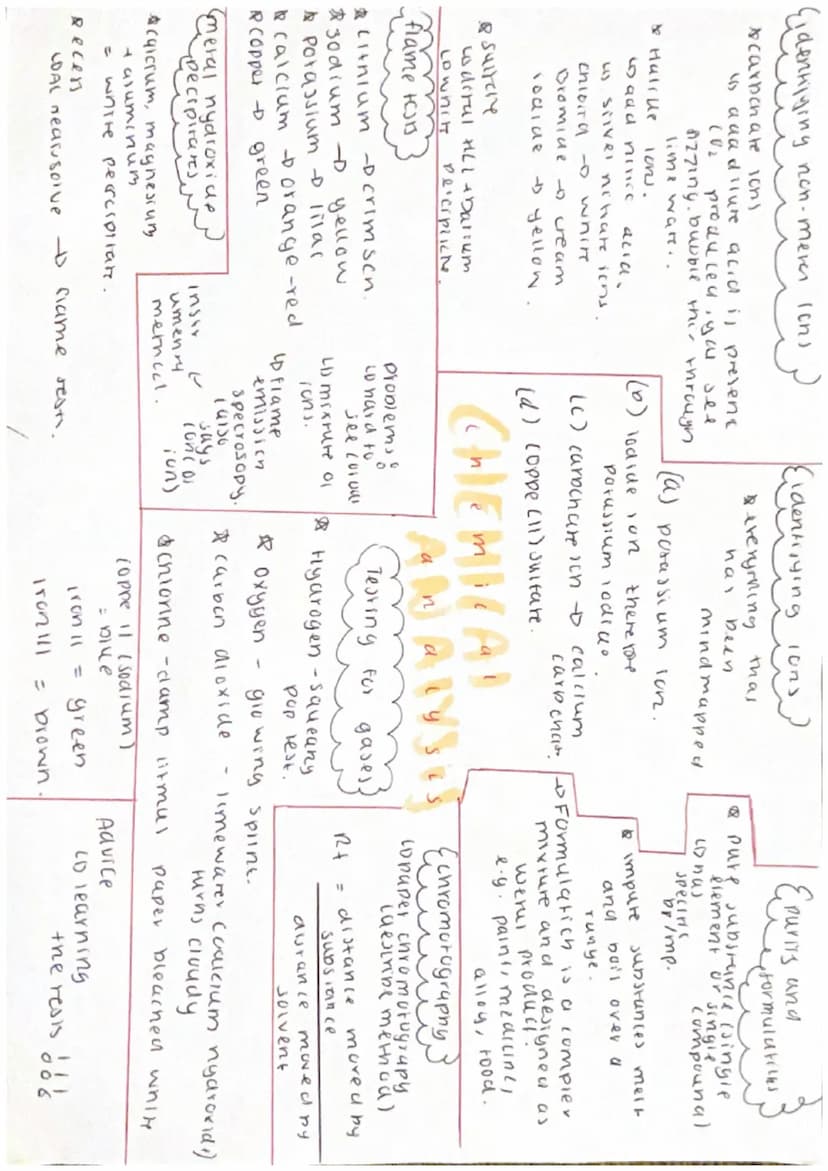 Identifying non-metal ions
* carbonate ions
↳ add dilute acid is present
CO₂ produced, you see
fizzing. bubble this through
lime water.
* Halide ions.
↳ add nitric acid,
↳ silver nitrate ions.
chloride → white
bromide → cream
iodide → yellow.
* sulfate
↳ white percipitate
Identifying ions
* everything that
has been
mindmapped
(a) potassium ion.
(b) iodide ion therefore
potassium iodide.
(c) carbonate ion → calcium
carbonate.
(d) copper(II) sulfate.
purity and
formulations
* pure substance (single
element or single
compound)
↳ has
specific
bp/mp.
* impure substances melt
and boil over a
range.
→ Formulation is a complex
mixture and designed as
useful product.
e.g. paint, medicine,
alloy, food.
CHEMICAL
chemical
ANALYSIS
analysis
flame test
* lithium → crimson.
* sodium → yellow
* potassium → lilac
* calcium → orange-red
* copper → green
problems:
↳ hard to
see colour
↳ mixture of
ions.
↳ flame
emission
specrosopy.
(also
says
conc of
ion)
instr
umental
method.
metal hydroxide
percipitates
* calcium, magnesium
+ aluminum
= white percipitate.
* excess
↳ Al redissolve → flame test.
copper II (sodium)
= blue
iron II = green
iron III = brown.
Testing for gases
* Hydrogen - squeaky
pop test.
* oxygen - glowing splint.
* carbon dioxide - limewater (calcium hydroxide)
turns cloudy
* chlorine - damp litmus paper bleached white
chromotography
↳ paper chromotograpy
(describe method)
Rf = distance moved by
substance
distance moved by
solvent
Advice
↳ learning
the tests !!!